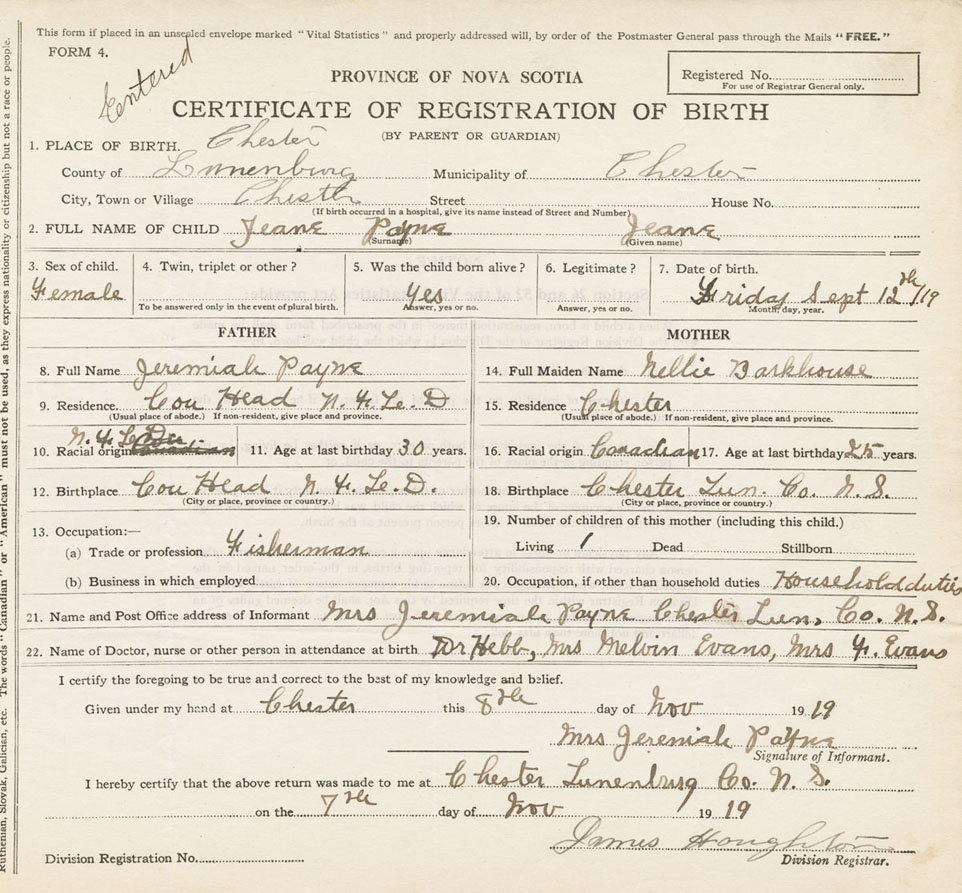 This form if placed in an unsealed envelope marked "Vital Statistics" and properly addressed will, by order of the Postmaster General pass through the Mails "FREE."
FORM 4.
Entered
PROVINCE OF NOVA SCOTIA
Registered No.
For use of Registrar General only.
CERTIFICATE OF REGISTRATION OF BIRTH
(BY PARENT OR GUARDIAN)
1. PLACE OF BIRTH. Chester
County of Lunenburg Municipality of Chester
City, Town or Village Chester Street House No.
(If birth occurred in a hospital, give its name instead of Street and Number)
2. FULL NAME OF CHILD Jeane Payne Jeane
(Surname) (Given name)
3. Sex of child. 4. Twin, triplet or other? 5. Was the child born alive? 6. Legitimate? 7. Date of birth.
Female Yes Friday Sept 12th /19
To be answered only in the event of plural birth. Answer, yes or no. Answer, yes or no. Month, day, year.
FATHER MOTHER
8. Full Name Jeremiah Payne 14. Full Maiden Name Nellie Barkhouse
9. Residence. Cou Head N. F. L. D 15. Residence Chester
(Usual place of abode.) If non-resident, give place and province. (Usual place of abode.) If non-resident, give place and province.
10. Racial origin Canadian 11. Age at last birthday 30 years. 16. Racial origin Canadian 17. Age at last birthday 25 years.
12. Birthplace Cou Head N. F. L. D. 18. Birthplace Chester Lun. Co. N. S.
(City or place, province or country.) (City or place, province or country.)
13. Occupation:— 19. Number of children of this mother (including this child.)
(a) Trade or profession Fisherman Living 1 Dead Stillborn
(b) Business in which employed 20. Occupation, if other than household duties Household duties
21. Name and Post Office address of Informant Mrs Jeremiah Payne Chester Lun, Co. N. S.
22. Name of Doctor, nurse or other person in attendance at birth Dr Hebb, Mrs Melvin Evans, Mrs F. Evans
I certify the foregoing to be true and correct to the best of my knowledge and belief.
Given under my hand at Chester this 8th day of Nov 1919
Mrs Jeremiah Payne
Signature of Informant.
I hereby certify that the above return was made to me at Chester Lunenburg Co. N. S.
on the 7th day of Nov 1919
James Houghton
Division Registrar.
Division Registration No.
Ruthenian, Slovak, Galician, etc. The words "Canadian" or "American" must not be used, as they express nationality or citizenship but not a race or people.